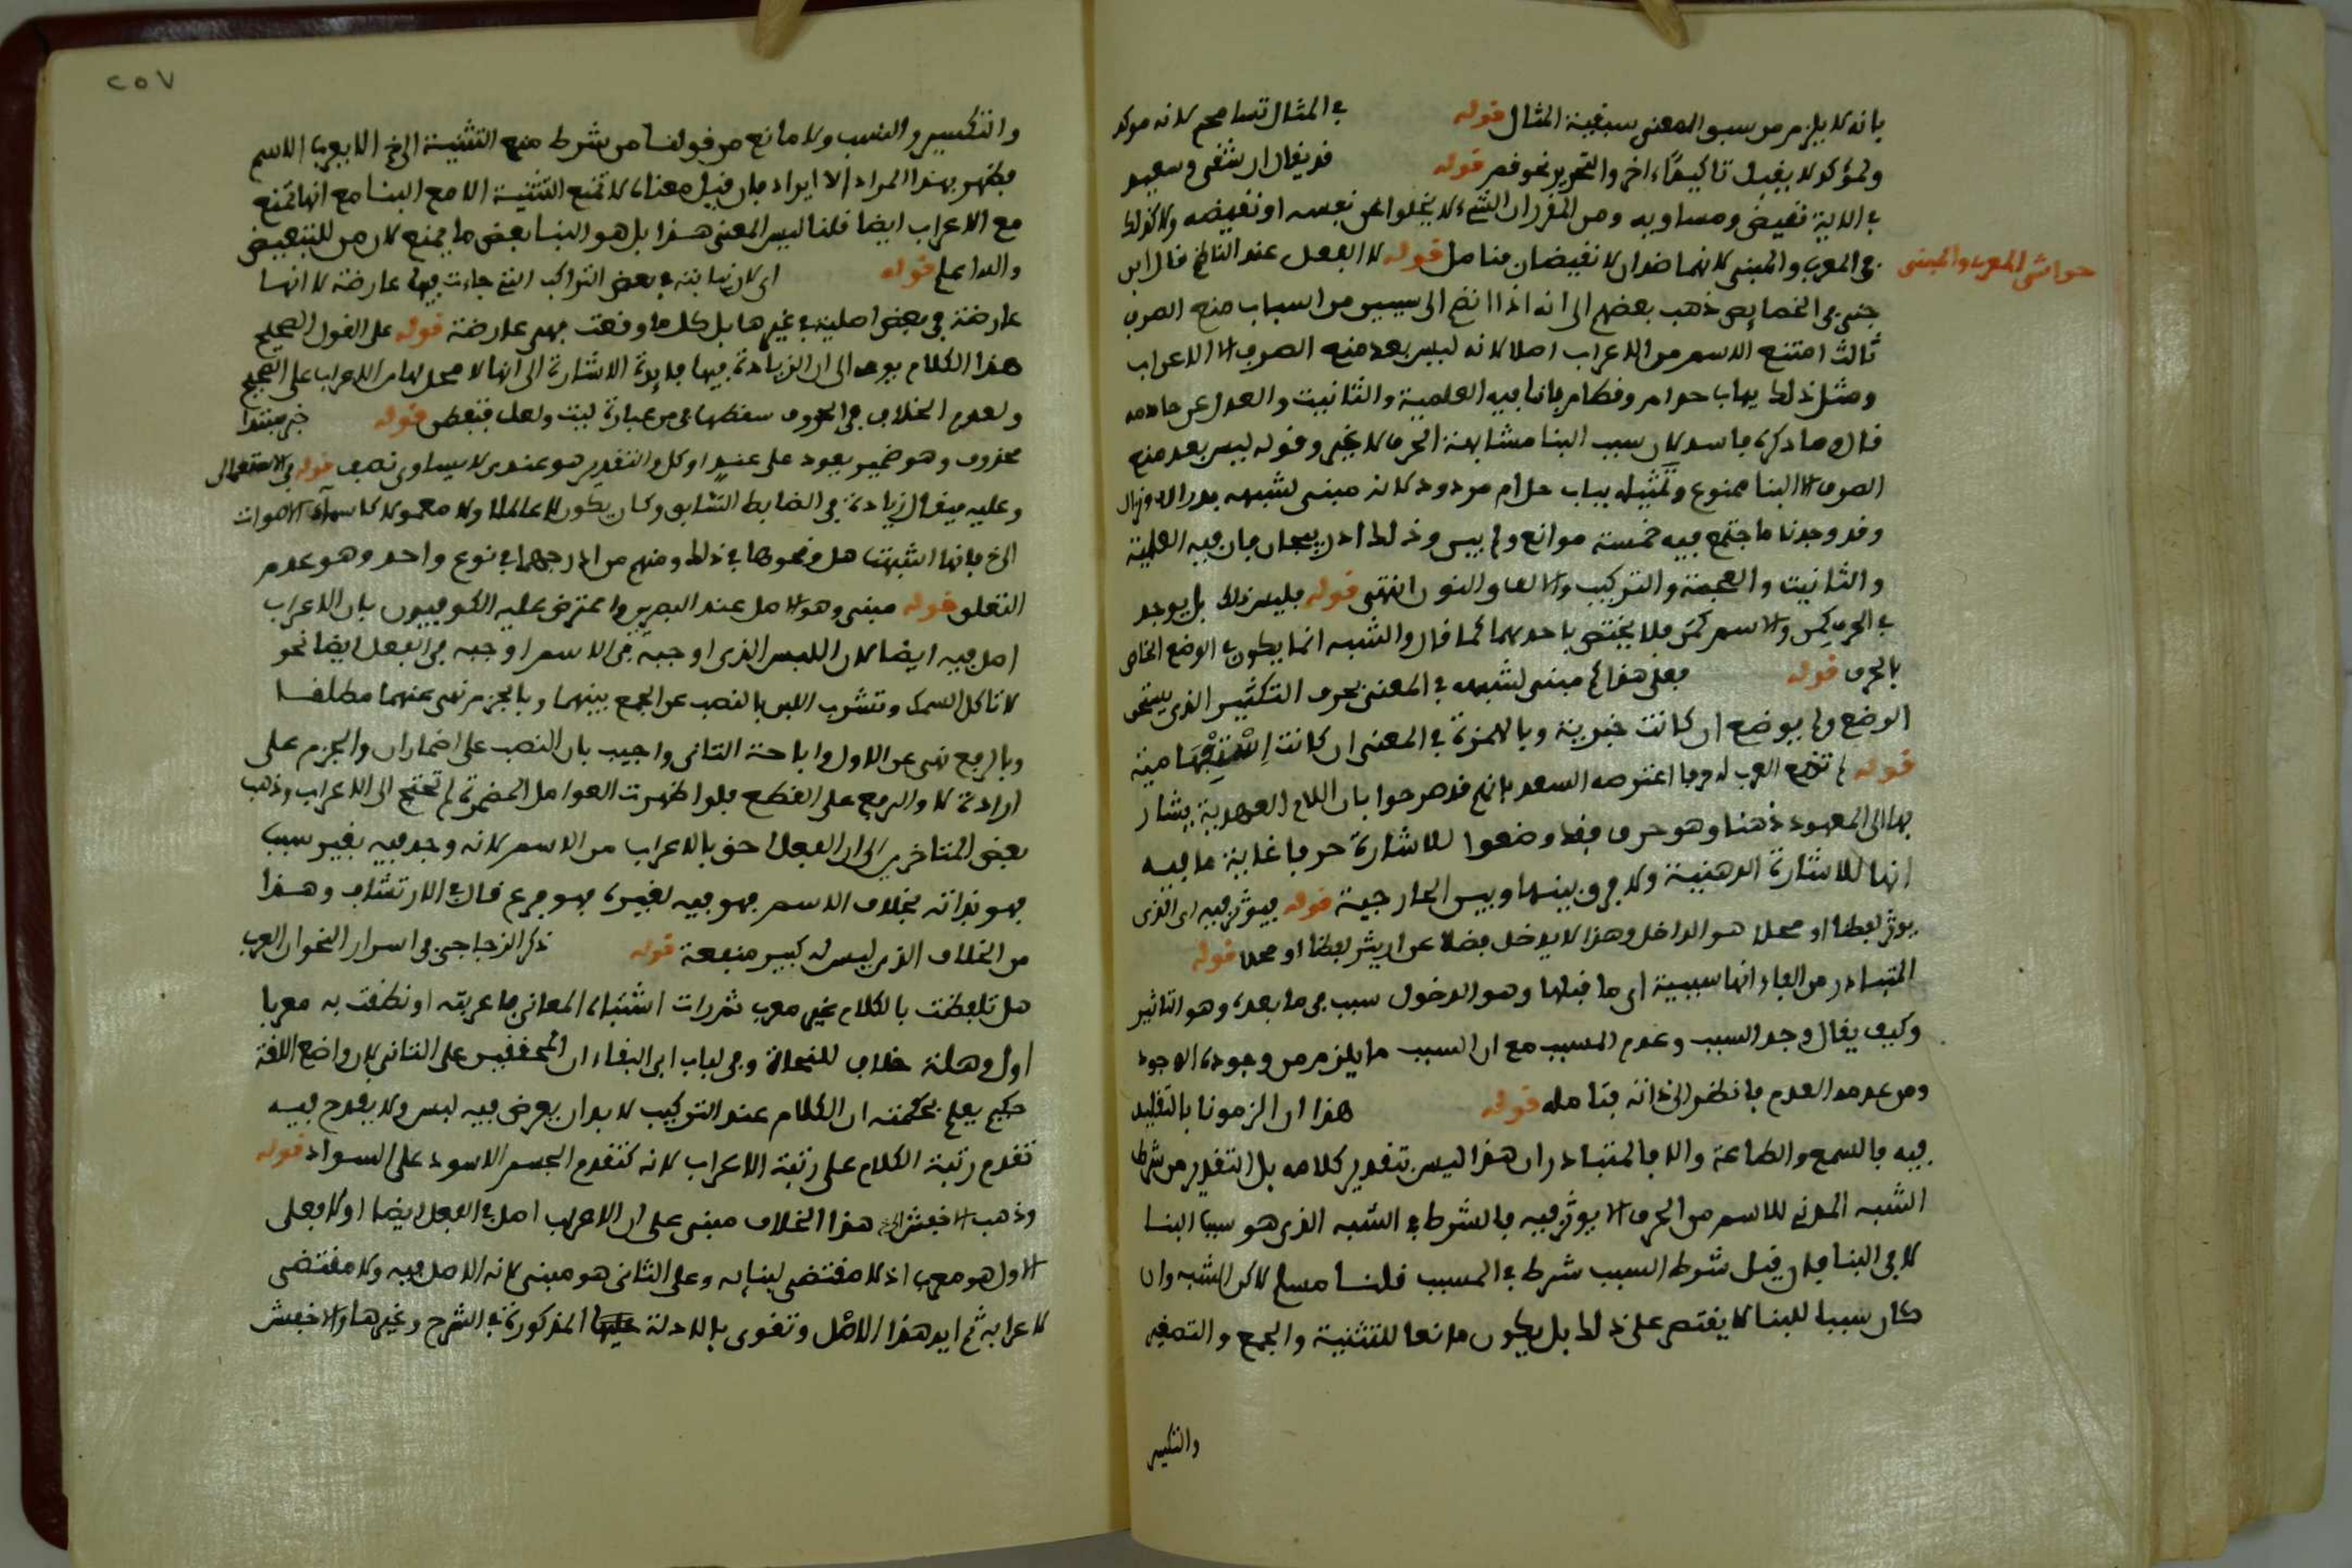 بانه لا يلزم من سبق المعنى سبقية المثال قوله في المثال تسامح لانه موكد
والمؤكد لا يقبل تاكيدا اخر والتحرير نحو قصر قوله قد يقال ان شقى وسعيد
في الاية نقيض ومساويه ومن المقرر ان الشيء لا يخلوا عن نفسه او نقيضه ولا كذلك
حواشى المعرب والمبنى
في المعرب والمبنى لانهما ضدان لا نقيضان فتامل قوله لا الفعل عند الناظم قال ابن
جنى في الخصايص ذهب بعضهم الى انه اذا انضم الى سببين من اسباب منع الصرف
ثالث امتنع الاسم من الاعراب اصلا لانه ليس بعد منع الصرف الا الاعراب
ومثل ذلك بباب حذام وقطام فانا فيه العلمية والتانيث والعدل عن حاذمه
قال وما ذكره فاسد لان سبب البنا مشابهة الحرف لا غير وقوله ليس بعد منع
الصرف الا البنا ممنوع وتمثيله بباب حذام مردود لانه مبنى لشبهه بدراك ونزال
وقد وجدنا ما اجتمع فيه خمسة موانع ولم يبن وذلك اذربيجان فان فيه العلمية
والتانيث والعجمة والتركيب والالف والنون انتهى قوله فليس ذلك بل يوجد
في الحرف كمن والاسم كمن فلا يختص باحدهما كما قال والشبه انما يكون في الوضع الخاص
بالحرف قوله فعلى هذا كم مبنى لشبهه في المعنى بحرف التكثير الذى يستحق
الوضع ولم يوضع ان كانت خبرية وبالهمزة في المعنى ان كانت استفهامية
قوله لم تضع العرب له حرفا اعترضه السعد بانهم قد صرحوا بان اللام العهدية يشار
بها الى المعهود ذهنا وهو حرف فقد وضعوا للاشارة حرفا غاية ما فيه
انها للاشارة الذهنية ولا فرق بينها وبين الخارجية قوله فيوثر فيه اى الذى
يوثر لفظا او محلا هو الداخل وهذا لا يدخل فضلا عن ان يوثر لفظا او محلا قوله
المتبادر من الفاء انها سببية اى ما قبلها وهو الدخول سبب في ما بعده وهو التاثير
وكيف يقال وجد السبب وعدم المسبب مع ان السبب ما يلزم من وجوده الوجود
ومن عدمه العدم بالنظر الى ذاته فتامله قوله هذا ان الزمونا بالتقليد
فيه فالسمع والطاعة والا فالمتبادر ان هذا ليس تقدير كلامه بل التقدير من شرط
الشبه المدنى للاسم من الحرف الا يوثر فيه فالشرط في الشبه الذى هو سبب البنا
لا في البنا فان قيل شرط السبب شرط في المسبب قلنا مسلم لاكن الشبه وان
كان سببا للبنا لا يقتصر على ذلك بل يكون مانعا للتثنية والجمع والتصغير
والتكسير
٢٥٧
والتكسير والنسب ولا مانع من قولنا من شرط منع التثنية الخ الا يعرب الاسم
فظهر بهذا المراد لا ايراد فان قيل معناه لا تمنع التثنية الا مع البنا مع انها تمنع
مع الاعراب ايضا قلنا ليس المعنى هذا بل هو البنا بعض ما يمنع لان من للتبعيض
والله اعلم قوله اى لان نيابته في بعض التراكب التى جاءت فيها عارضة لا انها
عارضة في بعض اصلية في غيرها بل كل ما وقعت فهى عارضة قوله على القول الصحيح
هذا الكلام يومى الى ان الزيادة فيها فايدة الاشارة الى انها لا محل لها من الاعراب على الصحيح
ولعدم الخلاف في الحروف سقطها في من عبارة ليت ولعل فتفطن قوله خبر مبتدا
محذوف وهو ضمير يعود على عندى او كل والتقدير هو عندى لا يساوى نصف قوله في الاستعمالى
وعليه فيقال زيادة في الضابط السابق وكان يكون لا عاملا ولا معمولا كاسماء الاصوات
الخ فانها اشبهت هل ونحوها في ذلك ومنهم من ادرجهما في نوع واحد وهو عدم
التعلق قوله مبنى وهو الاصل عند البصريين واعترض عليه الكوفيون بان الاعراب
اصل فيه ايضا لان اللبس الذى اوجبه في الاسم اوجبه في الفعل ايضا نحو
لا تاكل السمك وتشرب اللبن بالنصب عن الجمع بينهما وبالجزم نهى عنهما مطلقا
وبالرفع نهى عن الاول واباحة الثانى واجيب بان النصب على اضمار ان والجزم على
ارادة لا والرفع على القطع فلو اظهرت العوامل المضمرة لم تحتج الى الاعراب وذهب
بعض المتاخرين الى ان الفعل احق بالاعراب من الاسم لانه وجد فيه بغير سبب
فهو بذاته بخلاف الاسم فهو فيه لغيره فهو فرع قال في الارتشاف وهذا
من الخلاف الذى ليس له كبير منفعة قوله ذكر الزجاجى في اسرار النحو ان العرب
هل تلفظت بالكلام غير معرب ثم رات اشتباه المعانى فاعربته او نطقت به معربا
اول وهلة خلاف للنحاة وفي لباب ابى البقاء ان المحققين على الثانى لان واضع اللغة
حكيم يعلم بحكمته ان الكلام عند التركيب لا بد ان يعرض فيه لبس ولا يقدح فيه
تقدم رتبة الكلام على رتبة الاعراب لانه كتقدم الجسم الاسود على السواد قوله
وذهب الاخفش الخ هذا الخلاف مبنى على ان الاعراب اصل في الفعل ايضا او لا فعلى
الاول هو معرب اذ لا مقتضى لبنايه وعلى الثانى هو مبنى لانه الاصل فيه ولا مقتضى
لاعرابه ثم ايد هذا الاصل وتقوى بالادلة المذكورة في الشرح وغيرها والاخفش